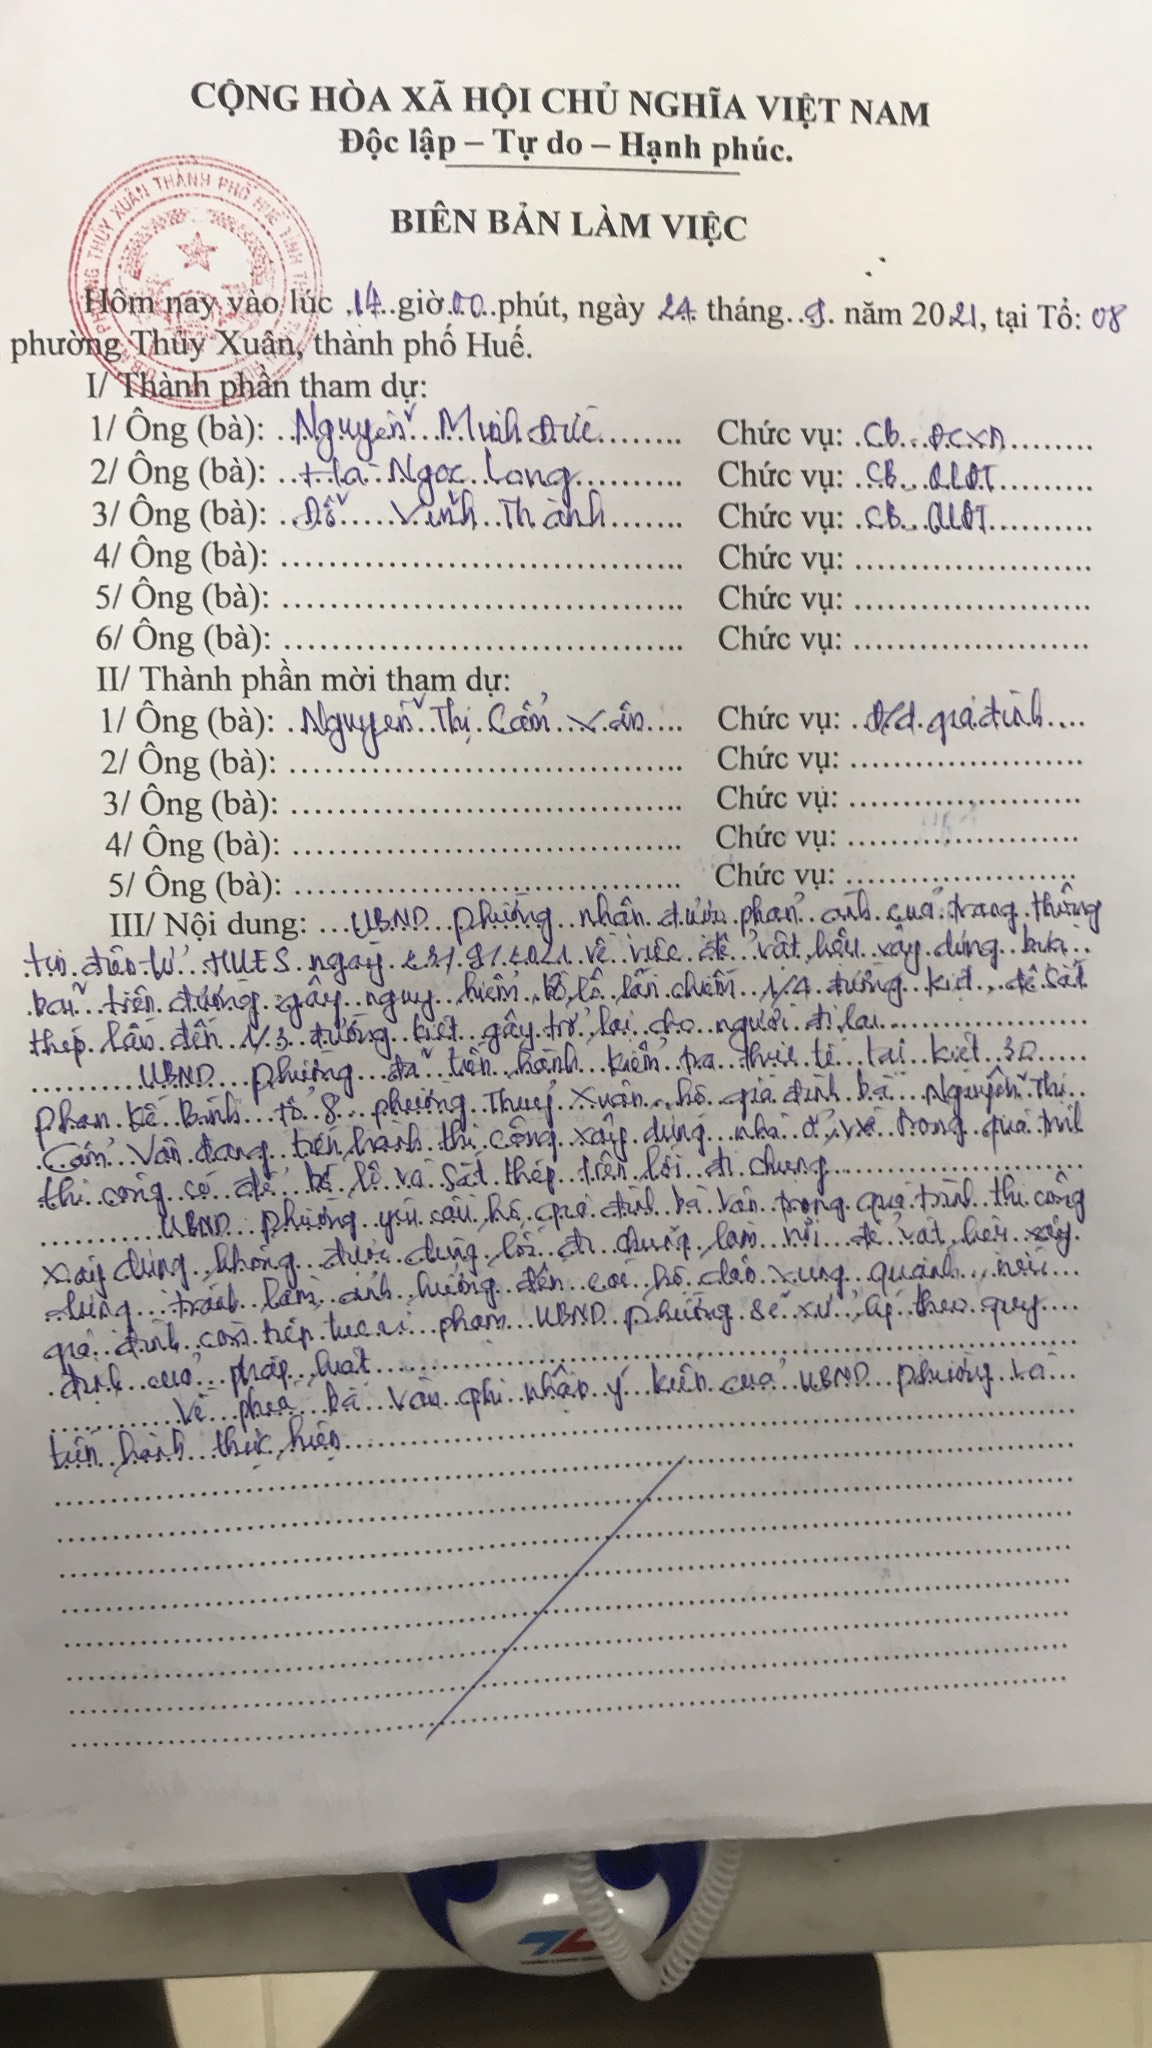 CỘNG HÒA XÃ HỘI CHỦ NGHĨA VIỆT NAM
Độc lập – Tự do – Hạnh phúc.
BIÊN BẢN LÀM VIỆC
Hôm nay vào lúc 14 giờ 00 phút, ngày 24 tháng 9 năm 2021, tại Tổ: 08
phường Thủy Xuân, thành phố Huế.
I/ Thành phần tham dự:
1/ Ông (bà): Nguyễn Minh Đức Chức vụ: CB ĐCXD
2/ Ông (bà): Hà Ngọc Long Chức vụ: CB QLĐT
3/ Ông (bà): Đỗ Vinh Thành Chức vụ: CB QLĐT
4/ Ông (bà): Chức vụ:
5/ Ông (bà): Chức vụ:
6/ Ông (bà): Chức vụ:
II/ Thành phần mời tham dự:
1/ Ông (bà): Nguyễn Thị Cẩm Vân Chức vụ: Đ/d gia đình
2/ Ông (bà): Chức vụ:
3/ Ông (bà): Chức vụ:
4/ Ông (bà): Chức vụ:
5/ Ông (bà): Chức vụ:
III/ Nội dung: UBND phường nhận được phản ánh của trang thông
tin điện tử HUES ngày 23/9/2021 về việc để vật liệu xây dựng bừa
bãi trên đường gây nguy hiểm, bờ lô lấn chiếm 1/4 đường kiệt, để sắt
thép lấn đến 1/3 đường kiệt gây trở lại cho người đi lại
UBND phường đã tiến hành kiểm tra thực tế tại kiệt 30
Phan Kế Bính tổ 8 phường Thuỷ Xuân, hộ gia đình bà Nguyễn Thị
Cẩm Vân đang tiến hành thi công xây dựng nhà ở, và trong quá trình
thi công có để bờ lô và sắt thép trên lối đi chung
UBND phường yêu cầu hộ gia đình bà Vân trong quá trình thi công
xây dựng không được dùng lối đi chung làm nơi để vật liệu xây
dựng tránh làm ảnh hưởng đến các hộ dân xung quanh, nếu
gia đình còn tiếp tục vi phạm UBND phường sẽ xử lý theo quy
định của pháp luật
Về phía bà Vân ghi nhận ý kiến của UBND phường và
tiến hành thực hiện